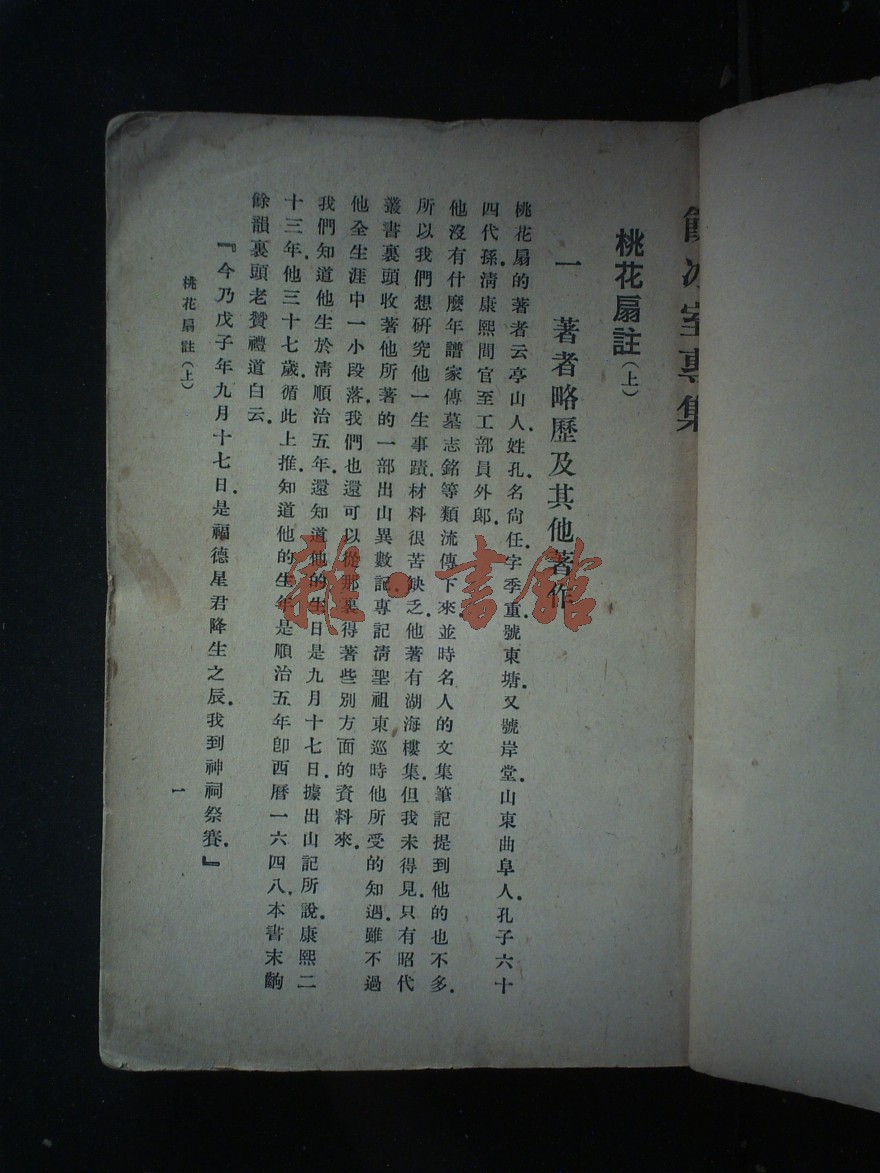 飲冰室專集
桃花扇註(上)
一 著者略歷及其他著作
桃花扇的著者云亭山人．姓孔．名尙任．字季重．號東塘．又號岸堂．山東曲阜人．孔子六十
四代孫．淸康熙間官至工部員外郞．
他沒有什麼年譜家傳墓志銘等類流傳下來．並時名人的文集筆記提到他的也不多．
所以我們想硏究他一生事蹟．材料很苦缺乏．他著有湖海樓集．但我未得見．只有昭代
叢書裏頭收著他所著的一部出山異數記．專記淸聖祖東巡時他所受的知遇．雖不過
他全生涯中一小段落．我們也還可以從那裏得著些別方面的資料來．
我們知道他生於淸順治五年．還知道他的生日是九月十七日．據出山記所說．康熙二
十三年．他三十七歲．循此上推．知道他的生年是順治五年卽西曆一六四八．本書末齣
餘韻裏頭老贊禮道白云．
『今乃戊子年九月十七日．是福德星君降生之辰．我到神祠祭賽．』
桃花扇註(上)
一
雜·書館